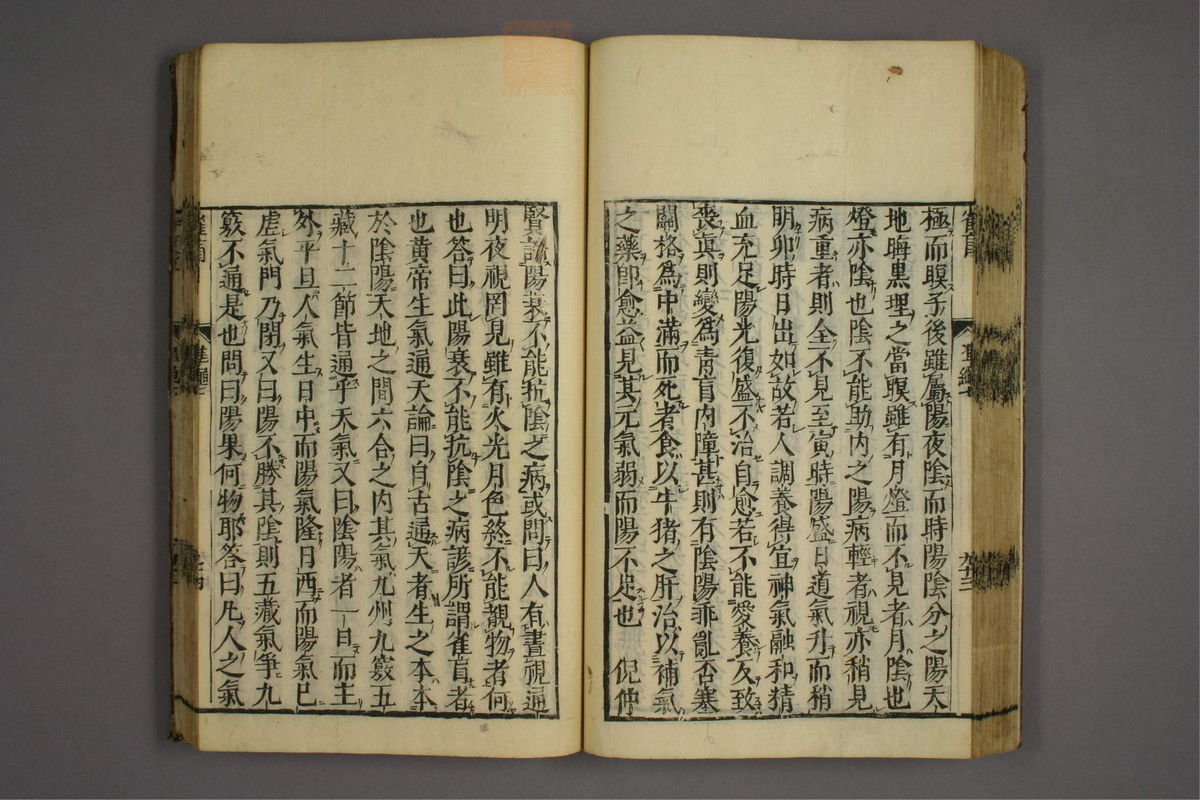 極而暝子後雖屬陽夜陰而時陽陰分之陽天
地晦黒理之當暝雖有月燈而不見者月陰也
燈亦陰也陰不能助内之陽病輕者視亦稍見
病重者則全不見至寅時陽盛日道氣升而稍
明卯時日出如故若人調養得宜神氣融和精
血充足陽光復盛不治自愈若不能愛養反致
喪眞則變爲青盲内障甚則有陰陽乖亂否塞
關格爲中滿而死者食以牛猪之肝治以補氣
之藥即愈益見其元氣弱而陽不足也　倪仲
賢論陽衰不能抗陰之病或問曰人有晝視通
明夜視罔見雖有火光月色終不能覩物者何
也答曰此陽衰不能抗陰之病諺所謂雀盲者
也黄帝生氣通天論曰自古通天者生之本本
於陰陽天地之間六合之内其氣九州九竅五
藏十二節皆通乎天氣又曰陰陽者一日而主
外平旦人氣生日中而陽氣隆日西而陽氣已
虚氣門乃閉又曰陽不勝其陰則五藏氣爭九
竅不通是也問曰陽果何物耶答曰凡人之氣